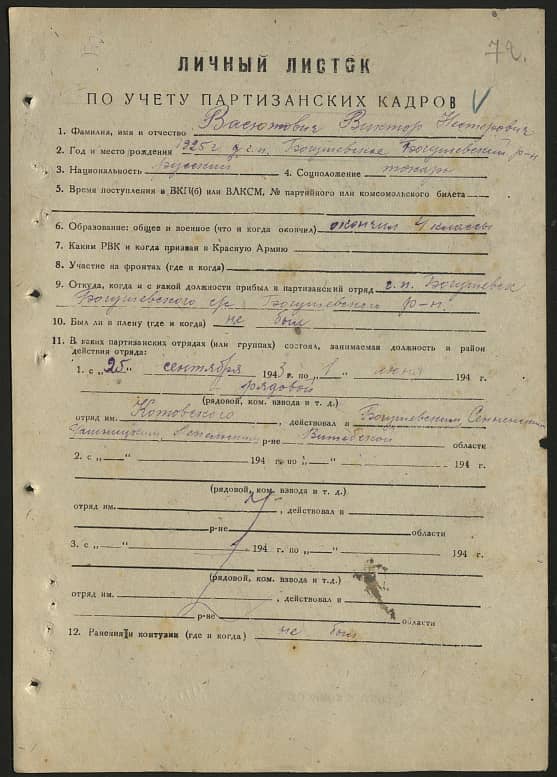 72.
ЛИЧНЫЙ ЛИСТОК
ПО УЧЕТУ ПАРТИЗАНСКИХ КАДРОВ V
1. Фамилия, имя и отчество Васютович Виктор Несторович
2. Год и место рождения 1925 г. г.п. Богушевск Богушевский р-н
3. Национальность Русский 4. Соцположение
5. Время поступления в ВКП(б) или ВЛКСМ, № партийного или комсомольского билета
6. Образование: общее и военное (что и когда окончил) окончил 4 классы
7. Каким РВК и когда призван в Красную Армию
8. Участие на фронтах (где и когда)
9. Откуда, когда и с какой должности прибыл в партизанский отряд г.п. Богушевск
Богушевского Богушевский р-н.
10. Был ли в плену (где и когда) не был
11. В каких партизанских отрядах (или группах) состоял, занимаемая должность и район
действия отряда:
1. с „25“ сентября 1943 г. по „1“ июня 194 г.
рядовой
(рядовой, ком. взвода и т. д.)
отряд им. Котовского, действовал в Богушевским, Сенненским
Чашницким, Лепельским р-не Витебской области
2. с „—“ 194 г. по „—“ 194 г.
(рядовой, ком. взвода и т. д.)
отряд им. , действовал в
р-не области
3. с „—“ 194 г. по „—“ 194 г.
(рядовой, ком. взвода и т.д.)
отряд им. , действовал в
р-не области
12. Ранения и контузии (где и когда) не был